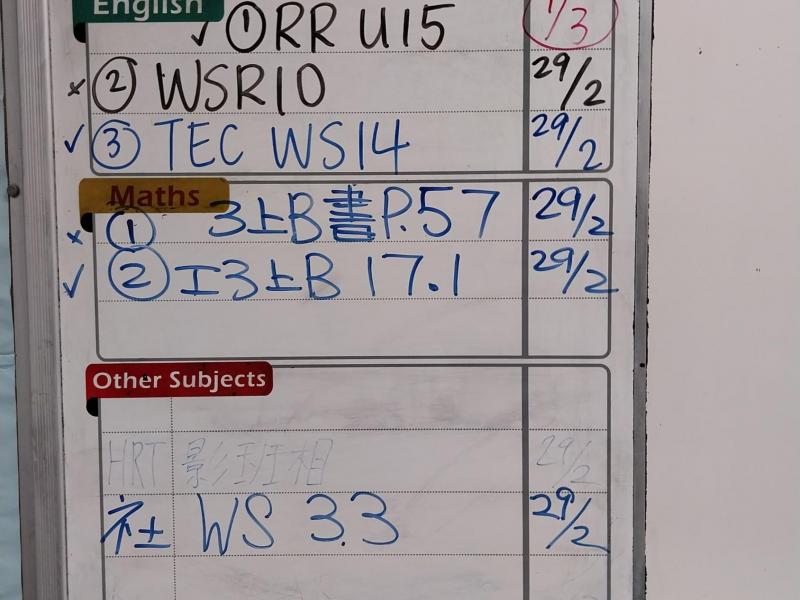 English
✓ ① ORR U15 1/3
× ② WSR10 29/2
✓ ③ TEC WS14 29/2
Maths
× ① 3上B書P.57 29/2
✓ ② 工3上B 17.1 29/2
Other Subjects
HRT 影班相 29/2
社 WS 3.3 29/2